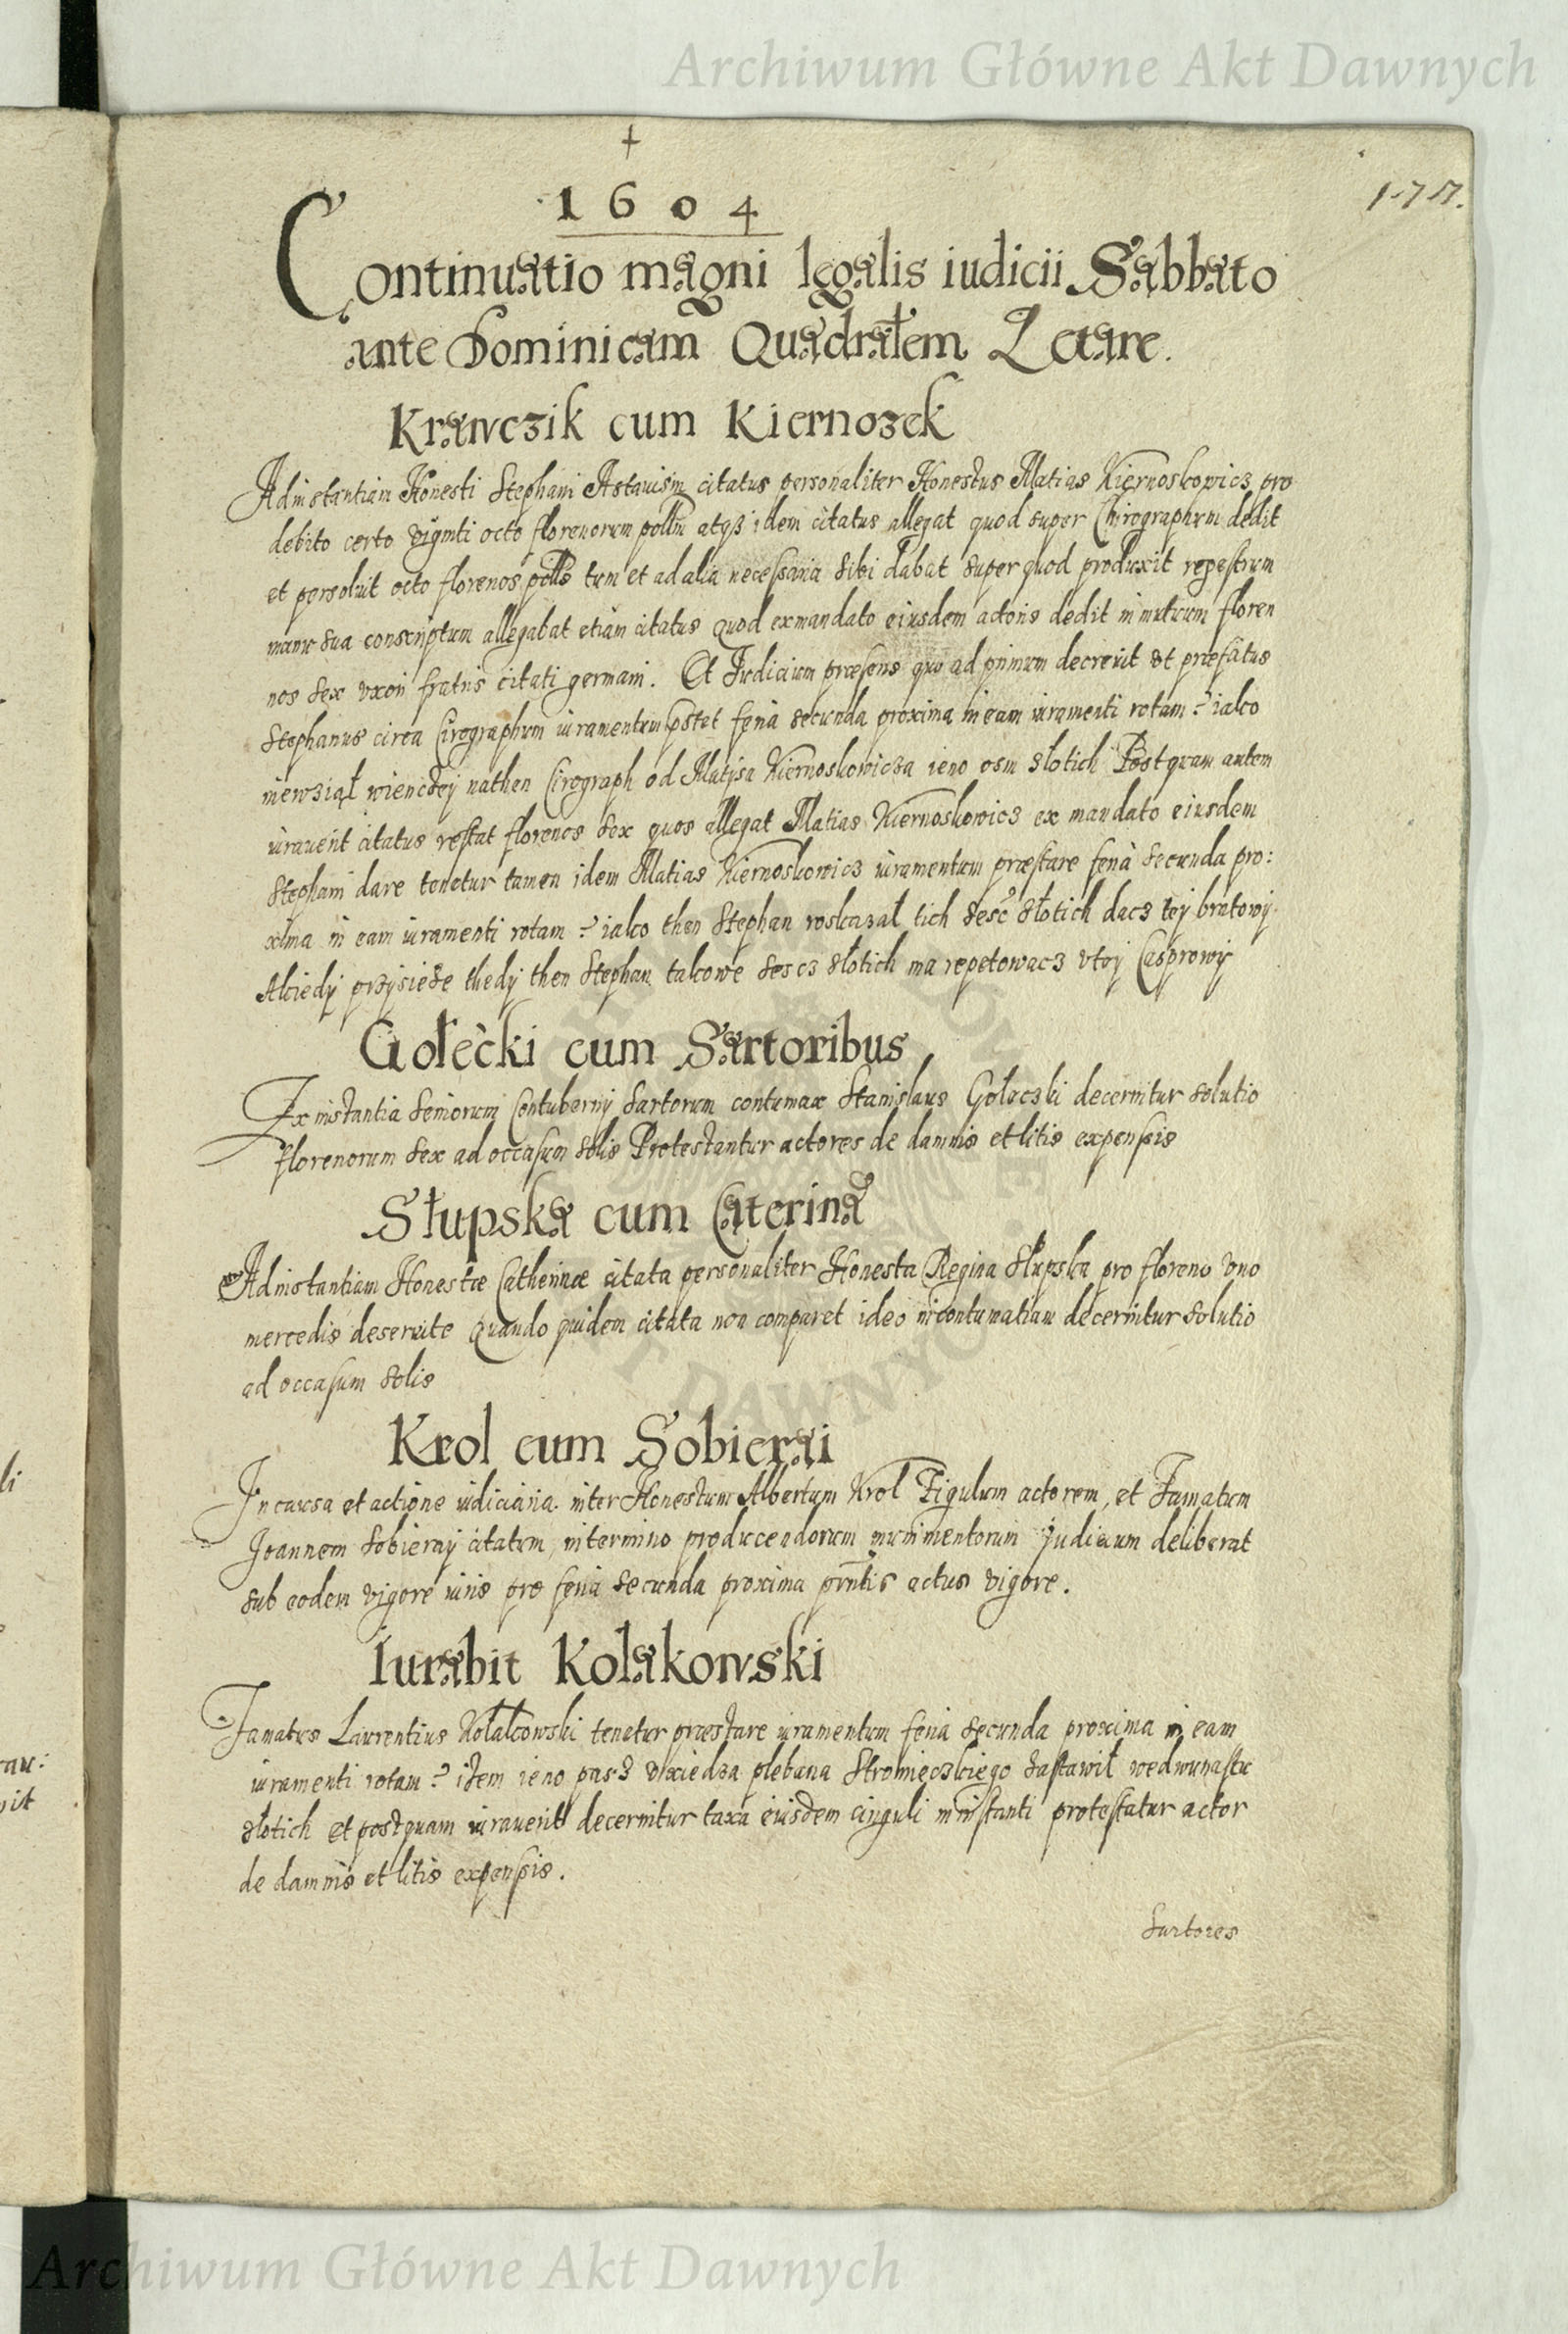 Archiwum Główne Akt Dawnych
+
1604
177.
Continuatio magni legalis iudicii Sabbato
ante Dominicam Quadralem Letare.
Krawczik cum Kiernozek
Ad instantiam Honesti Stephani citatus personaliter Honestus Matias Kiernoskowicz pro
debito certo viginti octo florenorum pollm atqz idem citatus allegat quod super Chirographum dedit
et persoluit octo florenos tum et ad alia necessaria sibi dabat super quod produxit regestrum
manu sua conscriptum allegabat etiam citatus quod ex mandato eiusdem actoris dedit in mutuum floren
nos sex vxori fratris citati germani. Et Iudicium præsens quo ad primum decreuit vt præfatus
Stephanus circa Cirographum iuramentum pstet feria secunda proxima in eam iuramenti rotam: iako
niewziął wienczey nathen Cirograph od Matysa Kiernoskowicza ieno osm złotich Postquam autem
iurauerit citatus restat florenos sex quos allegat Matias Kiernoskowicz ex mandato eiusdem
Stephani dare tenetur tamen idem Matias Kiernoskowicz iuramentum præstare feria secunda pro:
xima in eam iuramenti rotam: iako then Stephan roskazał tich sesć złotich dacz tey bratowy.
Akiedy przysieże thedy then Stephan takowe sescz złotich ma repetowacz vtey Casprowy
Gołecki cum Sartoribus
Ex instantia Seniorum Contubernij Sartorum contumax Stanislaus Goleczki decernitur solutio
florenorum sex ad occasum solis Protestantur actores de damnis et litis expensis
Słupska cum Caterina
Ad instantiam Honestæ Catherinæ citata personaliter Honesta Regina Słupska pro floreno vno
mercedis deseruite Quando quidem citata non comparet ideo in contumatiam decernitur solutio
ad occasum solis
Krol cum Sobierai
In causa et actione iudiciaria inter Honestum Albertum Krol Figulum actorem, et Famatum
Joannem Sobieray citatum, in termino producendorum munimentorum Judicium deliberat
sub eodem vigore iuris pro feria secunda proxima prntis actus vigore.
Iurabit Kolakowski
Famatus Laurentius Kołakowski tenetur præstare iuramentum feria secunda proxima in eam
iuramenti rotam: iżem ieno pas vxiedza plebana zastawił wedwunastu
złotich et postquam iurauerit decernitur taxa eiusdem cinguli in instanti protestatur actor
de damnis et litis expensis.
Sartores
Archiwum Główne Akt Dawnych